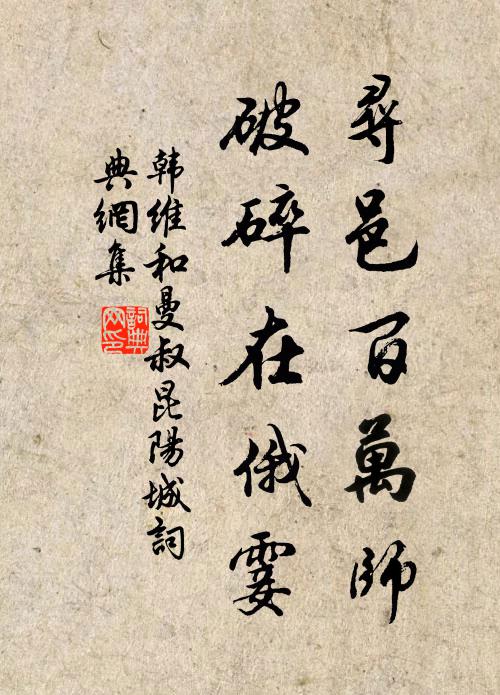 尋邑百萬師
破碎在俄霎
韩维和曼叔昆陽城詞
典網集
詞典
网印